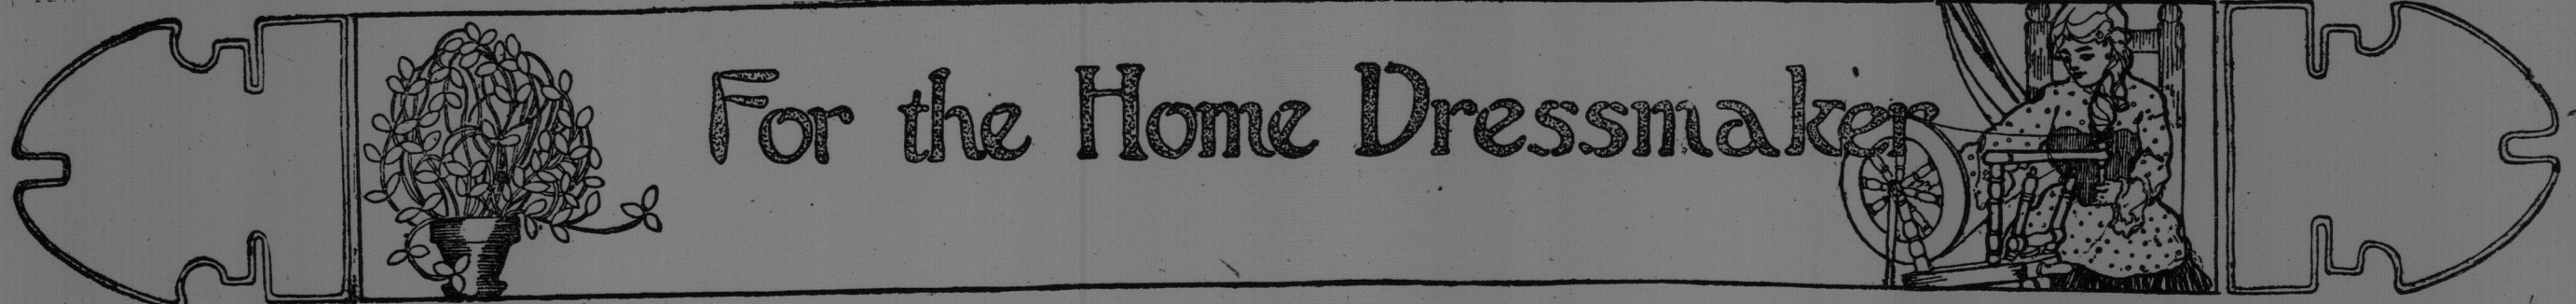 For the Home Dressmaker